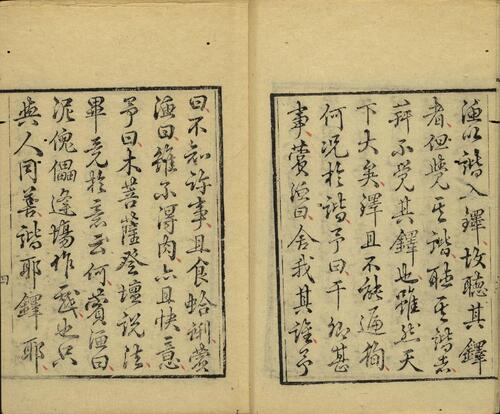 酒以諧入鐸故聽其鐸
者但覺其諧聽其諧者
并不覺其鐸也雖然天
下大矣鐸且不能遍徇
何况於諧予曰干卿甚
事薲漁曰舍我其誰予
曰不知許事且食蛤蜊薲
漁曰雖不得肉亦且快意
予曰木菩薩登壇說法
畢竟於意云何薲漁曰
泥傀儡逢場作戲也只
與人同善諧耶鐸耶
四